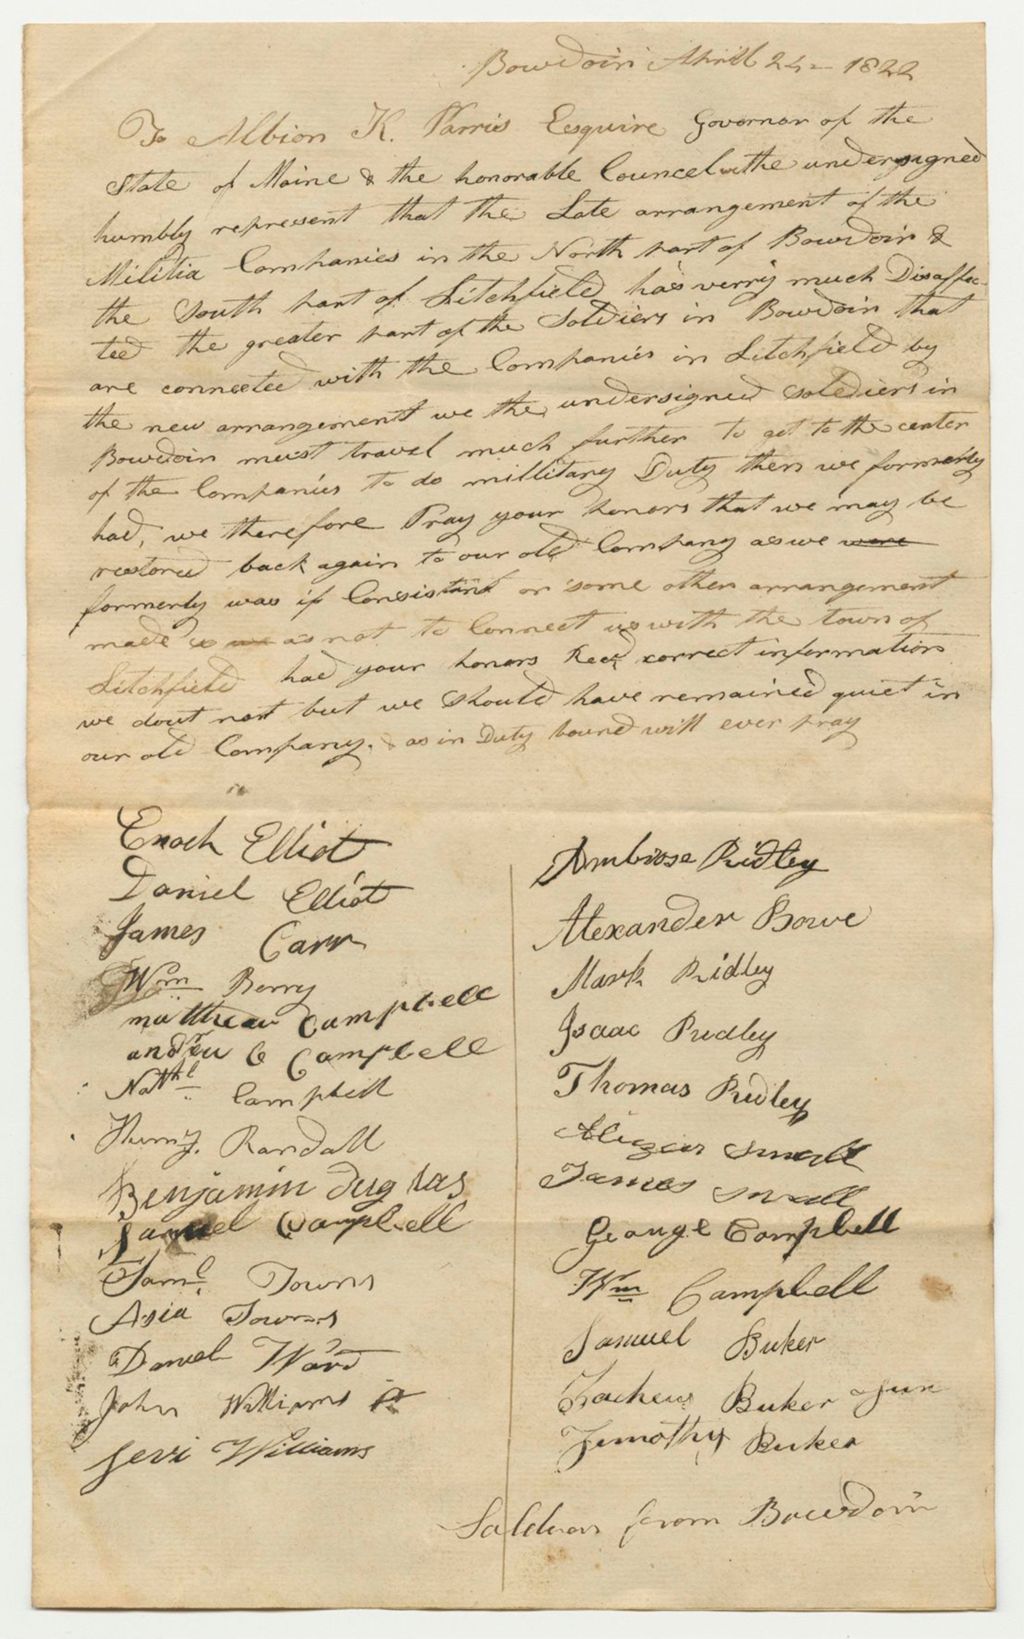 Bowdoin Aprill 24 - 1822
To Albion K. Parris Esquire Governor of the
State of Maine & the honorable Councel the undersigned
humbly represent that the Late arrangement of the
Militia Companies in the North part of Bowdoin &
the South part of Litchfield has verry much Disaffec-
ted the greater part of the Soldiers in Bowdoin that
are connected with the Companies in Litchfield by
the new arrangement we the undersigned soldiers in
Bowdoin must travel much further to get to the center
of the Companies to do millitary Duty then we formerly
had, we therefore Pray your honors that we may be
restored back again to our old Company as we were
formerly was if Consistant or some other arrangement
made so as not to Connect us with the town of
Litchfield had your honors Recd correct information
we dout not but we should have remained quiet in
our old Company. & as in Duty bound will ever pray
Enoch Elliot
Daniel Elliot
James Carr
Wm Berry
matthew Campbell
andrew C Campbell
Nathl Campbell
Henry. Randall
Benjamin duglas
Samuel Campbell
Saml Towns
Asia Towns
Daniel Ward
John Williams Jr
Levi Williams
Ambrose Ridley
Alexander Bowe
Mark Ridley
Isaac Ridley
Thomas Ridley
Small
James Small
George Campbell
Wm Campbell
Samuel Buker
Zacheus Buker Jun
Timothy Buker
from Bowdoin